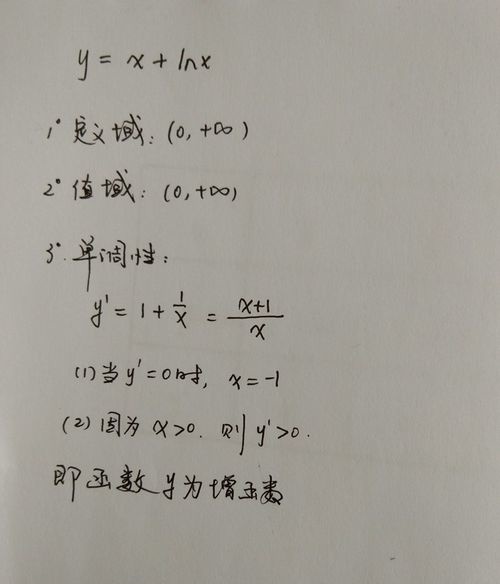 y = x + lnx
1° 定义域：(0, +∞)
2° 值域：(0, +∞)
3°. 单调性：
y' = 1 + 1/x = (x+1)/x
(1) 当 y' = 0 时, x = -1
(2) 因为 x>0. 则 y'>0.
即函数 y 为增函数